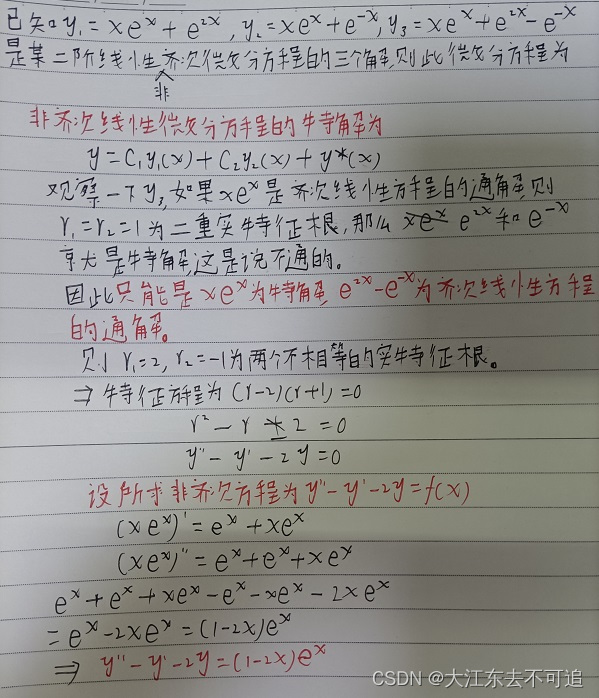 已知y₁=xeˣ+e²ˣ, y₂=xeˣ+e⁻ˣ, y₃=xeˣ+e²ˣ-e⁻ˣ
是某二阶线性非齐次微分方程的三个解,则此微分方程为
非齐次线性微分方程的特解为
y=C₁y₁(x)+C₂y₂(x)+y*(x)
观察一下y₃,如果xeˣ是齐次线性方程的通解,则
r₁=r₂=1为二重实特征根,那么 e²ˣ和e⁻ˣ
是特解,这是说不通的。
因此只能是xeˣ为特解,e²ˣ-e⁻ˣ为齐次线性方程
的通解。
则r₁=2,r₂=-1为两个不相等的实特征根。
⇒特征方程为(r-2)(r+1)=0
r²-r-2=0
y''-y'-2y=0
设所求非齐次方程为y''-y'-2y=f(x)
(xeˣ)'=eˣ+xeˣ
(xeˣ)''=eˣ+eˣ+xeˣ
eˣ+eˣ+xeˣ-eˣ-xeˣ-2xeˣ
=eˣ-2xeˣ=(1-2x)eˣ
⇒ y''-y'-2y=(1-2x)eˣ
CSDN @大江东去不可追